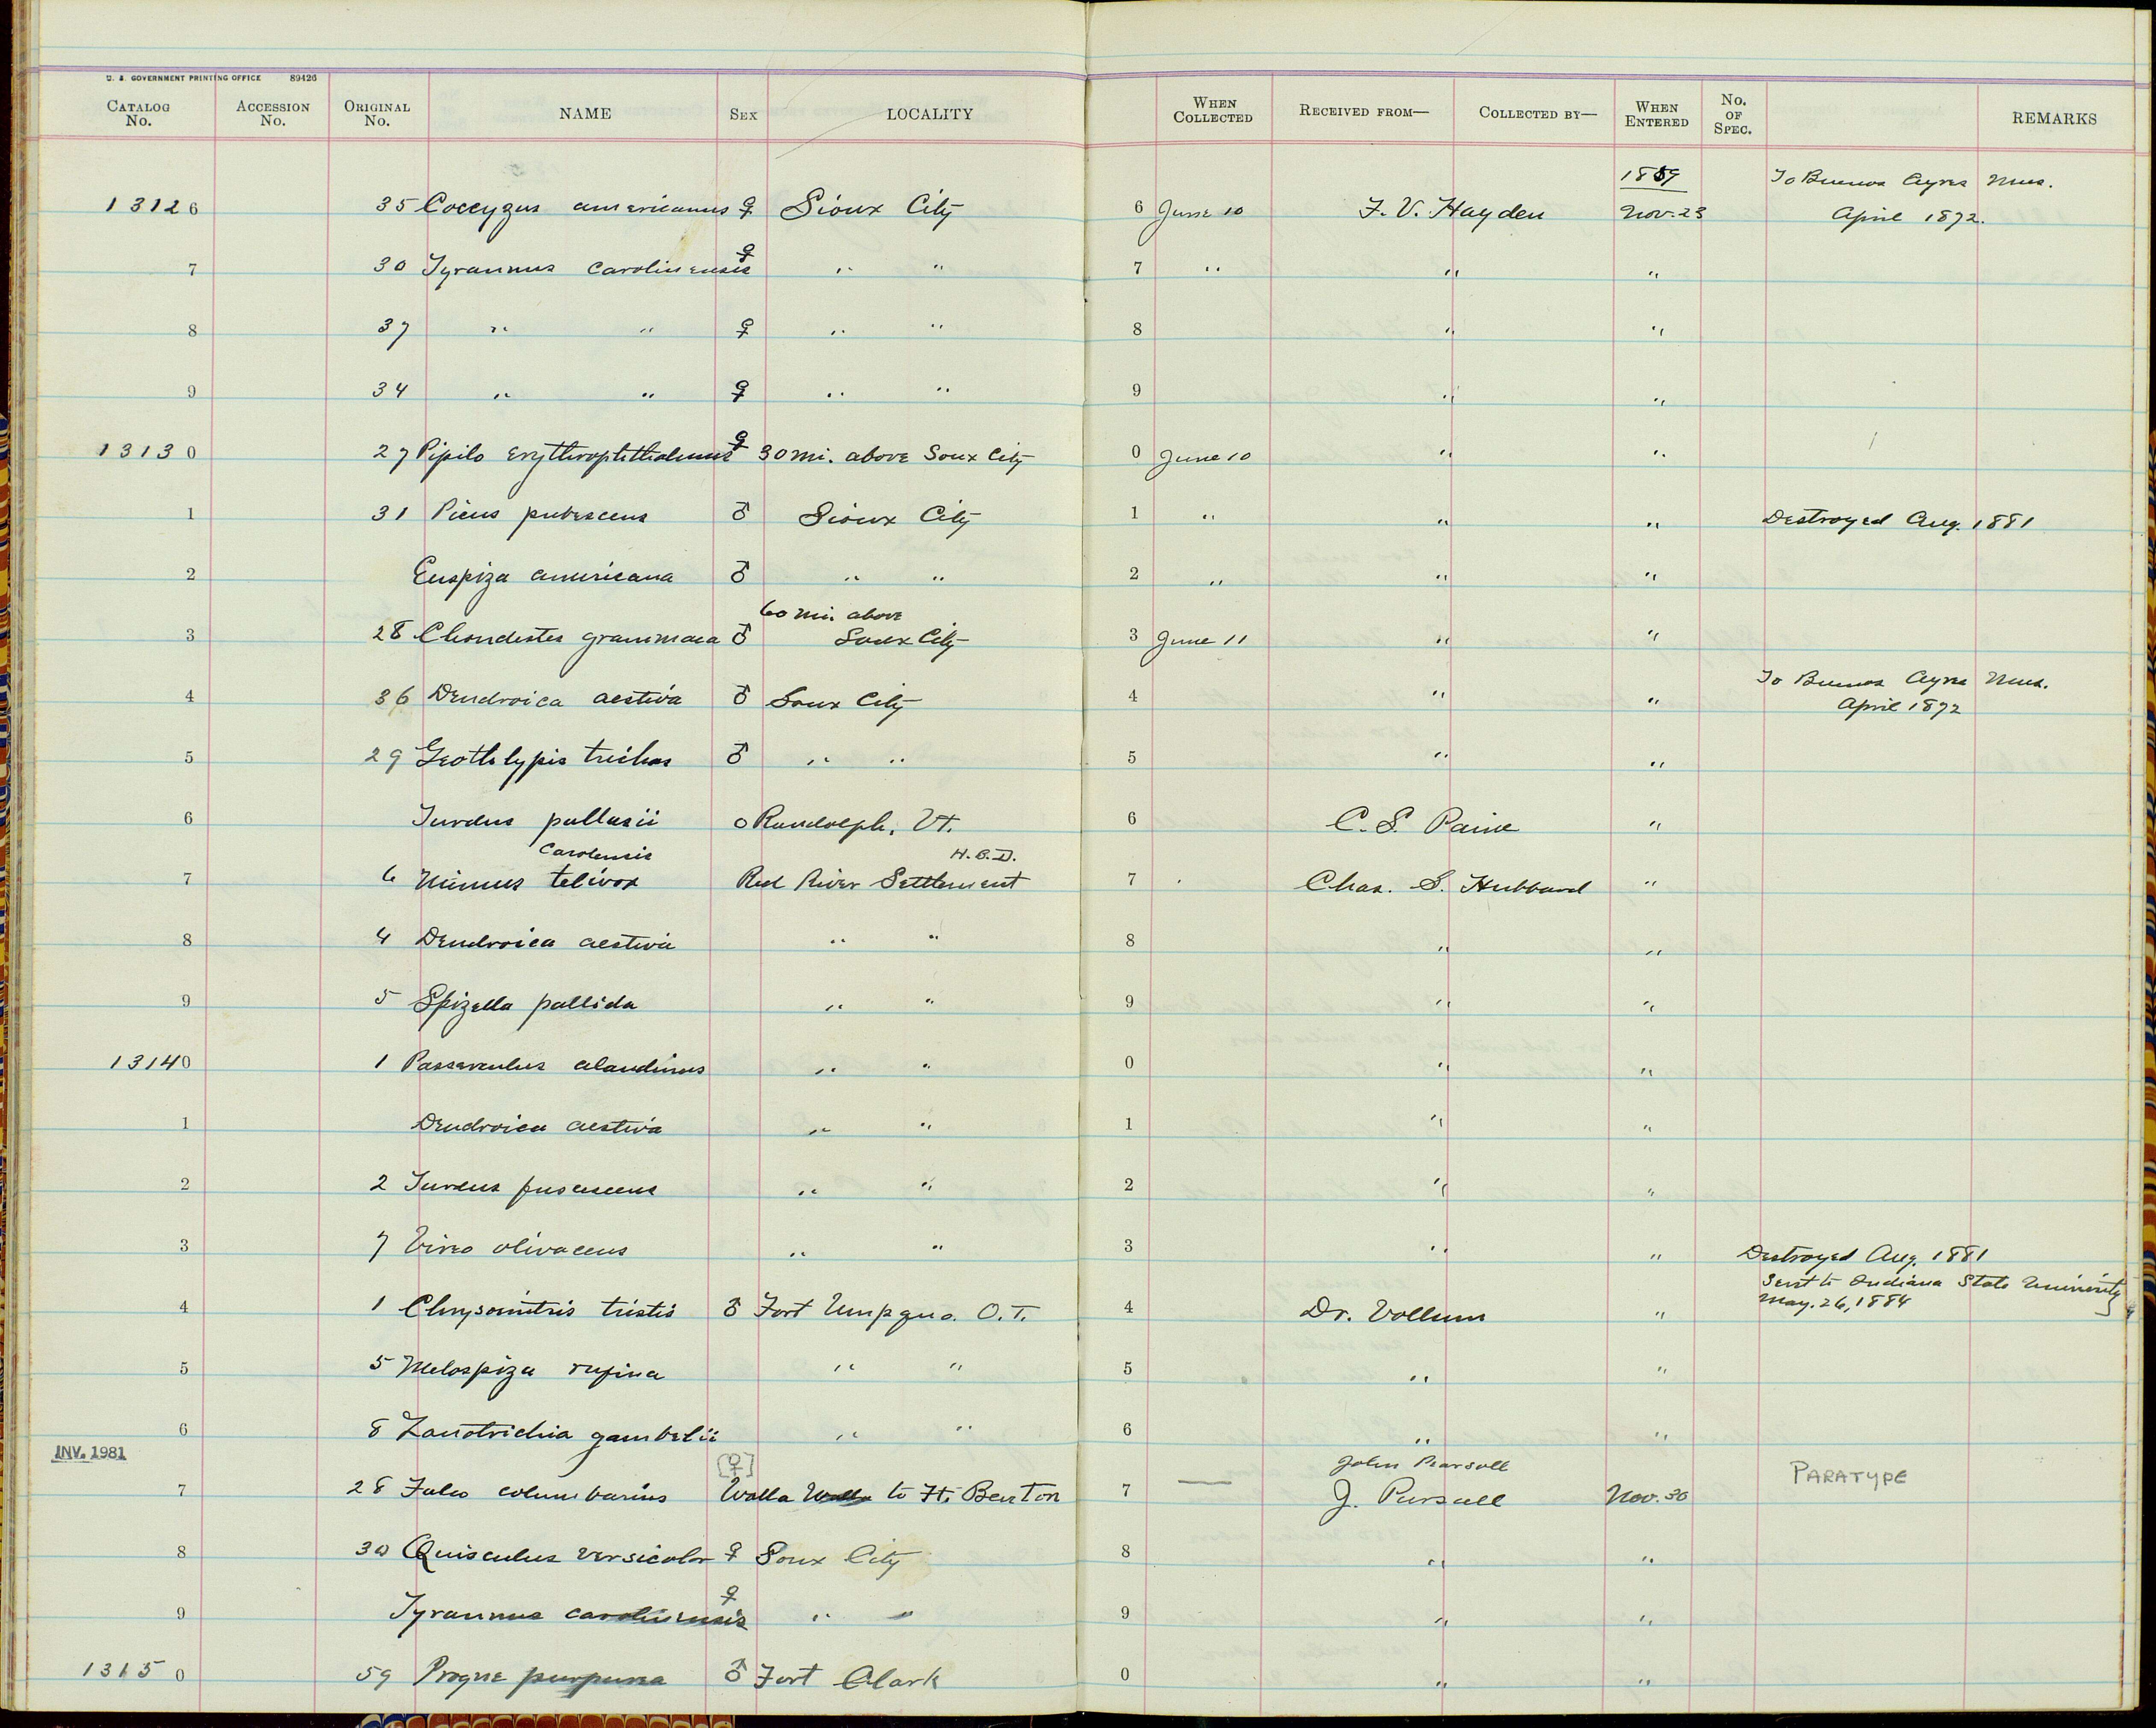 U. S. GOVERNMENT PRINTING OFFICE 89426
CATALOG No. ACCESSION No. ORIGINAL No. NAME SEX LOCALITY WHEN COLLECTED RECEIVED FROM— COLLECTED BY— WHEN ENTERED No. OF SPEC. REMARKS
1859 To Buenos Ayres Mus.
13126 35 Coccyzus americanus ♀ Sioux City 6 June 10 F. V. Hayden Nov. 23 April 1872.
7 30 Tyrannus carolinensis ♀ " " 7 " " "
8 37 " " ♀ " " 8 " "
9 34 " " ♀ " " 9 " "
13130 27 Pipilo erythrophthalmus ♀ 30 mi. above Soux City 0 June 10 " "
1 31 Picus pubescens ♂ Sioux City 1 " " " Destroyed Aug. 1881
2 Euspiza americana ♂ " " 2 " " "
60 mi. above
3 28 Chondestes grammaca ♂ Soux City 3 June 11 " "
To Buenos Ayres Mus.
4 36 Dendroica aestiva ♂ Soux City 4 " " April 1872
5 29 Geothlypis trichas ♂ " " 5 " "
6 Turdus pallasii o Randolph, Vt. 6 C. S. Paine "
Carolensis H.B.T.
7 6 Mimus felivox Red River Settlement 7 Chas. S. Hubbard "
8 4 Dendroica aestiva " " 8 " "
9 5 Spizella pallida " " 9 " "
13140 1 Passerculus alaudinus " " 0 " "
1 Dendroica aestiva " " 1 " "
2 2 Turdus fuscescens " " 2 " "
3 7 Vireo olivaceus " " 3 " " Destroyed Aug. 1881
Sent to Indiana State University
4 1 Chrysomitris tristis ♂ Fort Umpqua. O.T. 4 Dr. Vollum " May. 26, 1884
5 5 Melospiza rufina " " 5 " "
6 8 Zonotrichia gambelii " " 6 " "
INV. 1981 [♀] John Pearsall
7 28 Falco columbarius Walla Walla to Ft. Benton 7 — J. Pursall Nov. 30 PARATYPE
8 30 Quisculus versicolor ♀ Soux City 8 " "
9 Tyrannus carolinensis ♀ " " 9 " "
13150 59 Progne purpurea ♂ Fort Clark 0 " "